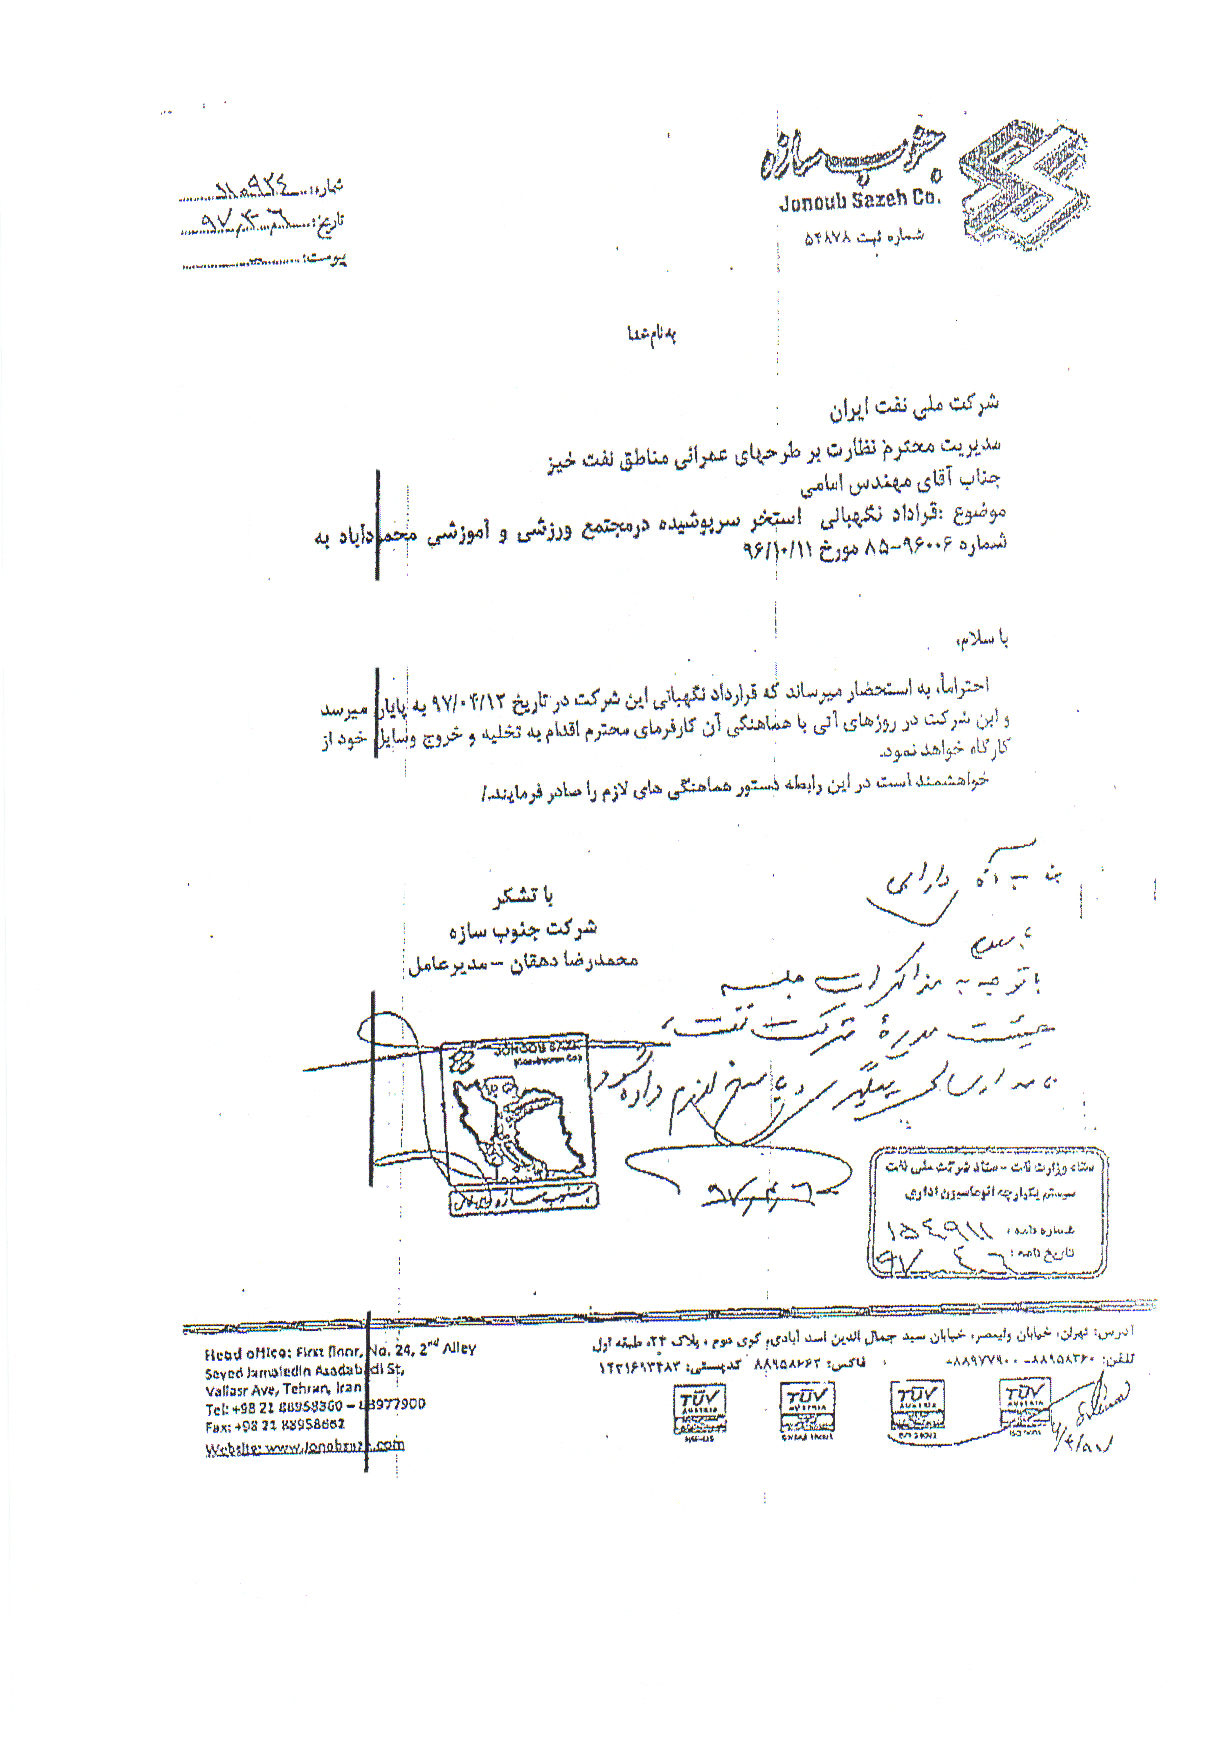 جنوب سازه
Jonoub Sazeh Co.
شماره ثبت ۵۴۸۷۸
شماره: ۱۱۰۹۳۴
تاریخ: ۹۷,۴,۰۶
پیوست:
به نام خدا
شرکت ملی نفت ایران
مدیریت محترم نظارت بر طرحهای عمرانی مناطق نفت خیز
جناب آقای مهندس امامی
موضوع :قراداد نگهبانی استخر سرپوشیده درمجتمع ورزشی و آموزشی محمودآباد به
شماره ۹۶۰۰۶-۸۵ مورخ ۹۶/۱۰/۱۱
با سلام،
احتراماً، به استحضار میرساند که قرارداد نگهبانی این شرکت در تاریخ ۹۷/۰۴/۱۳ به پایان میرسد
و این شرکت در روزهای آتی با هماهنگی آن کارفرمای محترم اقدام به تخلیه و خروج وسایل خود از
کارگاه خواهد نمود.
خواهشمند است در این رابطه دستور هماهنگی های لازم را صادر فرمایند./
با تشکر
شرکت جنوب سازه
محمدرضا دهقان - مدیر عامل
دارابی
با توجه به مذاکرات جلسه
هیئت مدیره شرکت نفت
پاسخ لازم داده شود
۹۷,۴,۶
JONOUB SAZEH
ستاد وزارت نفت - ستاد شرکت ملی نفت
سیستم یکپارچه اتوماسیون اداری
شماره نامه : ۱۵۴۹۱۱
تاریخ نامه : ۹۷ ۴ ۶
آدرس: تهران، خیابان ولیعصر، خیابان سید جمال الدین اسد آبادی، کوی دوم ، پلاک ۲۴، طبقه اول
تلفن: ۸۸۹۵۸۳۶۰-۸۸۹۷۷۹۰۰ فاکس: ۸۸۹۵۸۶۶۲ کدپستی: ۱۴۳۱۶۹۳۴۸۳
Head office: First floor, No. 24, 2nd Alley
Seyed Jamaledin Asadabadi St,
Valiasr Ave, Tehran, Iran
Tel: +98 21 88958360 – 88977900
Fax: +98 21 88958662
Website: www.jonobsaze.com
TÜV AUSTRIA
TÜV AUSTRIA
TÜV AUSTRIA
TÜV AUSTRIA